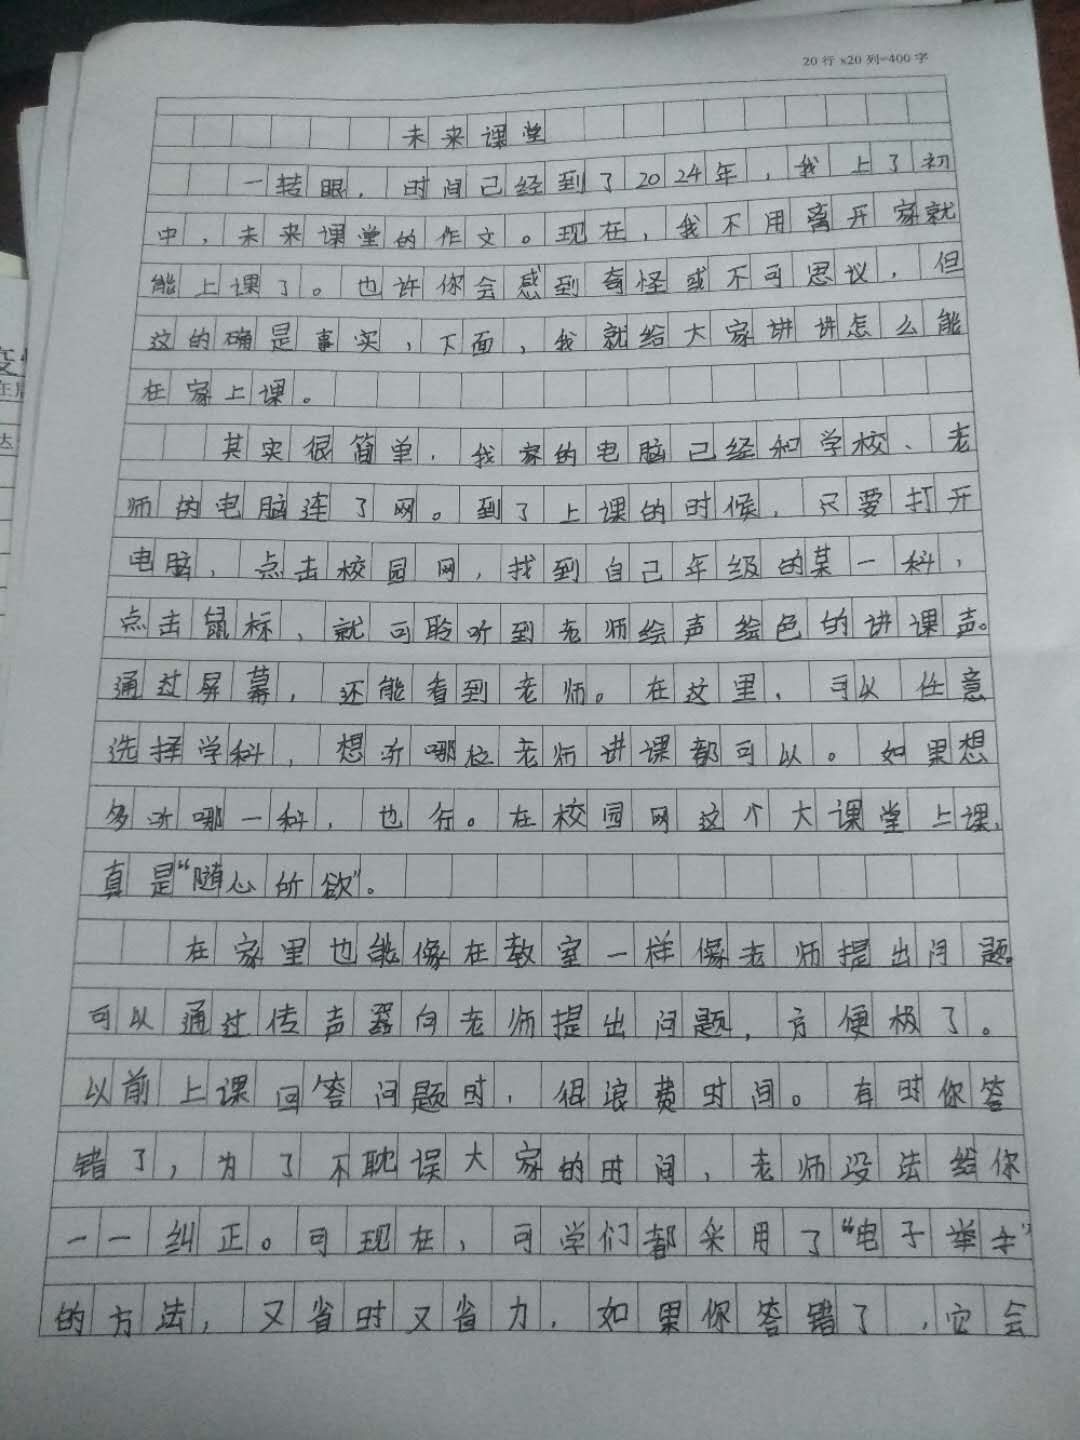 20行×20列=400字
未来课堂
一转眼，时间已经到了2024年，我上了初
中，未来课堂的作文。现在，我不用离开家就
能上课了。也许你会感到奇怪或不可思议，但
这的确是事实，下面，我就给大家讲讲怎么能
在家上课。
其实很简单，我家的电脑已经和学校、老
师的电脑连了网。到了上课的时候，只要打开
电脑，点击校园网，找到自己年级的某一科，
点击鼠标，就可聆听到老师绘声绘色的讲课声。
通过屏幕，还能看到老师。在这里，可以任意
选择学科，想听哪位老师讲课都可以。如果想
多听哪一科，也行。在校园网这个大课堂上课，
真是“随心所欲”。
在家里也能像在教室一样像老师提出问题。
可以通过传声器向老师提出问题，方便极了。
以前上课回答问题时，很浪费时间。有时你答
错了，为了不耽误大家的时间，老师没法给你
一一纠正。可现在，可学们都采用了“电子举手”
的方法，又省时又省力，如果你答错了，它会